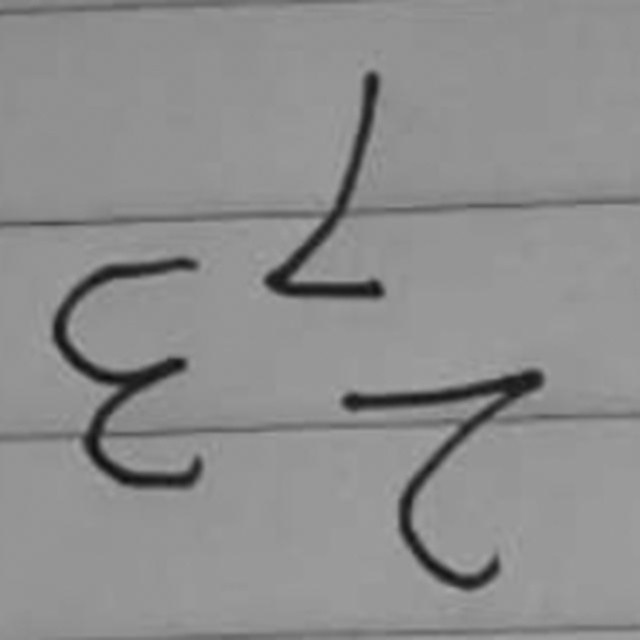 2 3
7